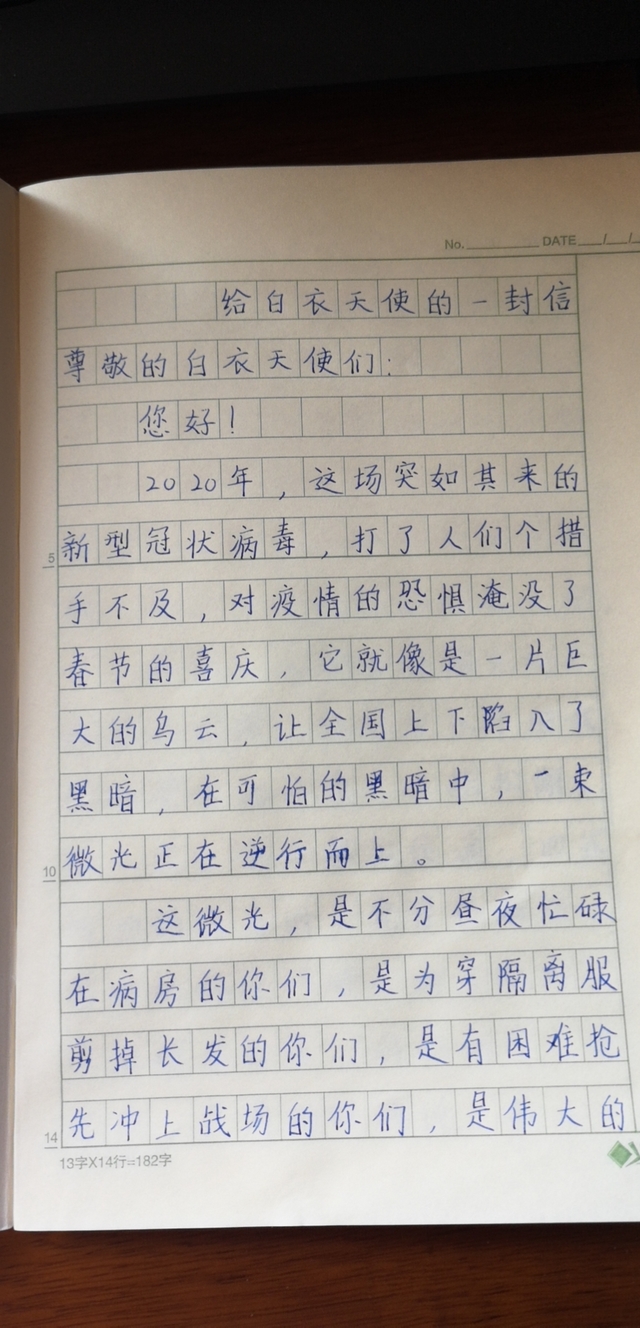 No. DATE / /
给白衣天使的一封信
尊敬的白衣天使们：
您好！
2020年，这场突如其来的
新型冠状病毒，打了人们个措
手不及，对疫情的恐惧淹没了
春节的喜庆，它就像是一片巨
大的乌云，让全国上下陷入了
黑暗，在可怕的黑暗中，一束
微光正在逆行而上。
这微光，是不分昼夜忙碌
在病房的你们，是为穿隔离服
剪掉长发的你们，是有困难抢
先冲上战场的你们，是伟大的
5
10
14
13字X14行=182字